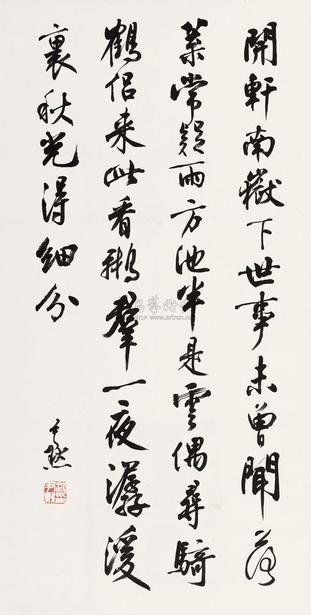 開軒南嶽下世事未曾聞落
葉常疑雨方池半是雲偶尋騎
鶴侶来此看鵝羣一夜潺湲
裏秋光得細分
尹默